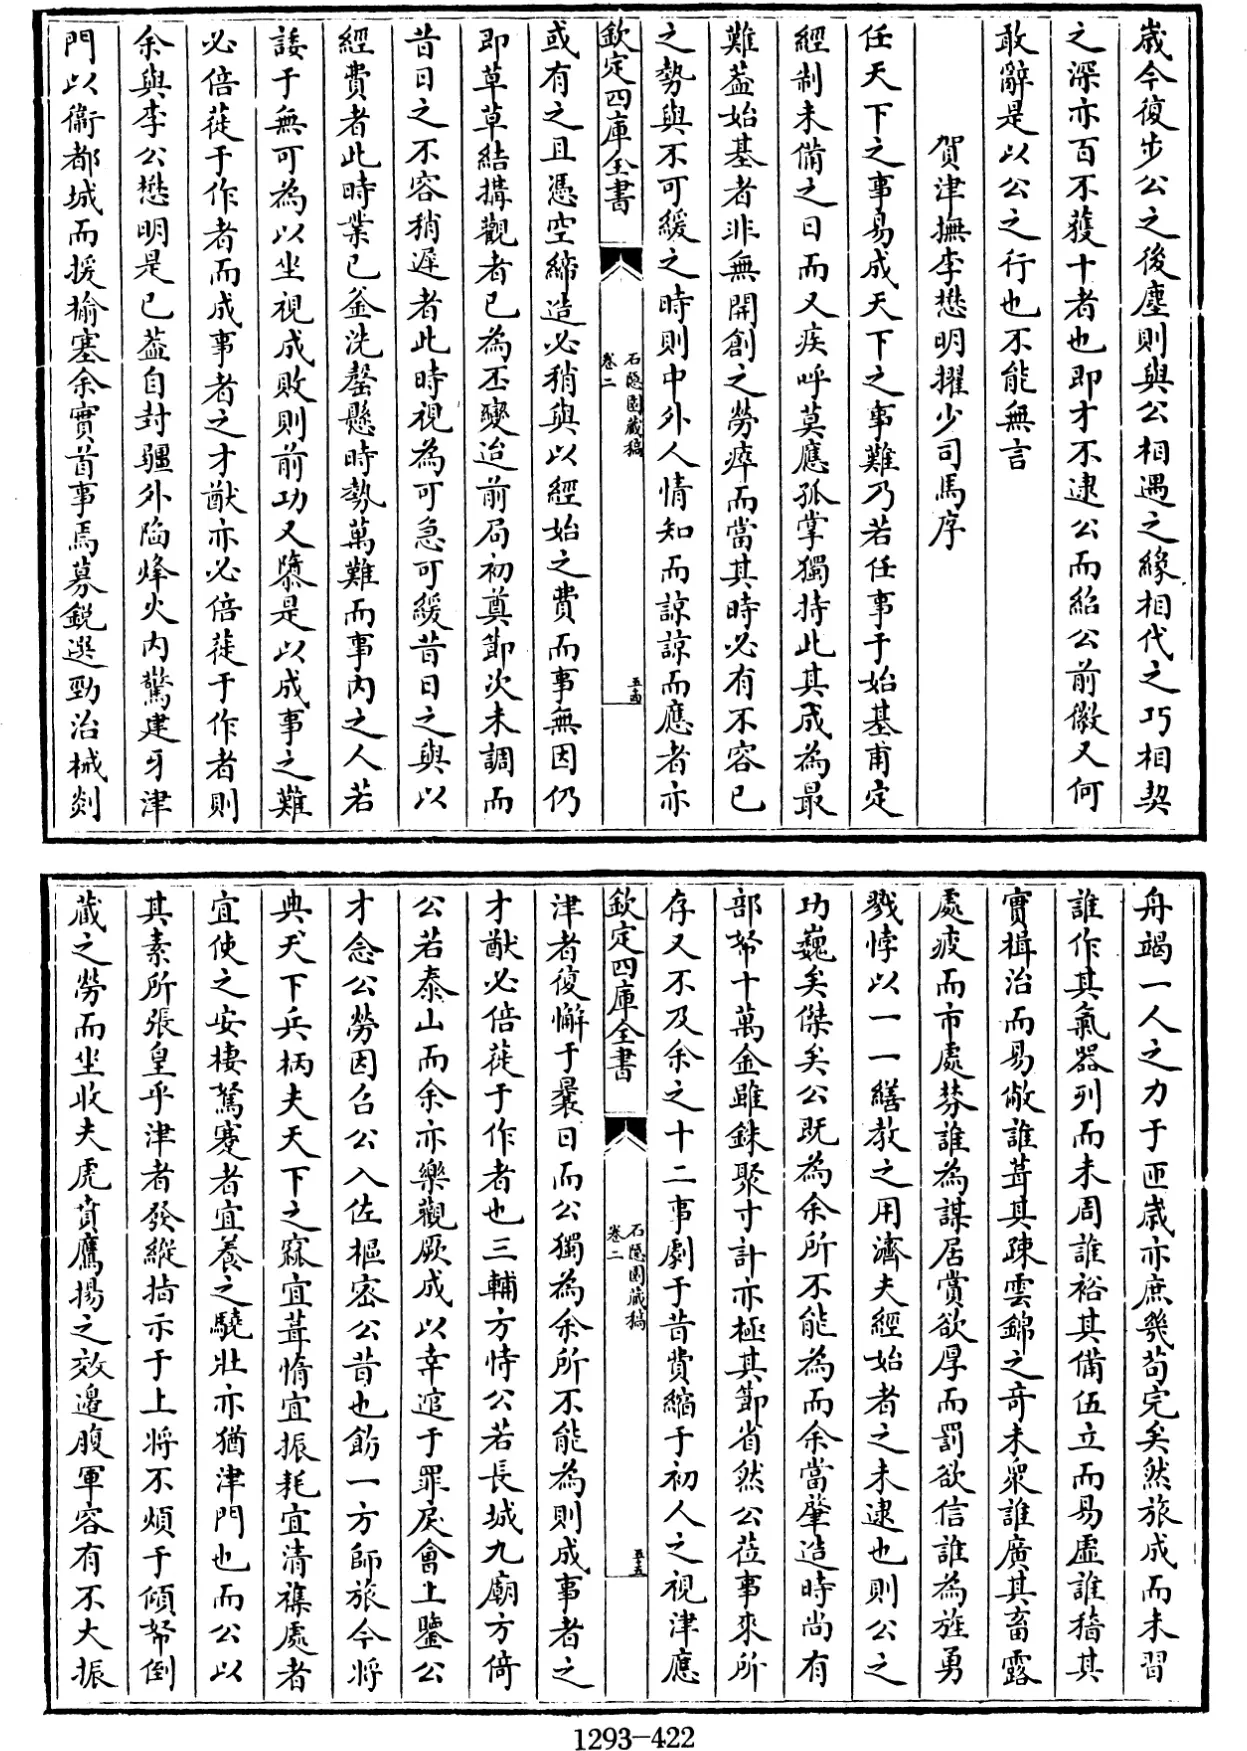 歲今復步公之後塵則與公相遇之緣相代之巧相契
之深亦百不獲十者也即才不逮公而紹公前徽又何
敢辭是以公之行也不能無言
賀津撫李懋明擢少司馬序
任天下之事易成天下之事難乃若任事于始基甫定
經制未備之日而又疾呼莫應孤掌獨持此其成為最
難葢始基者非無開創之勞瘁而當其時必有不容已
之勢與不可緩之時則中外人情知而諒諒而應者亦
欽定四庫全書
石隱園藏稿
卷二
五十四
或有之且憑空締造必稍與以經始之費而事無因仍
即草草結搆觀者已為丕變迨前局初奠節次未調而
昔日之不容稍遲者此時視為可急可緩昔日之與以
經費者此時業已釜洗罄懸時勢萬難而事內之人若
諉于無可為以坐視成敗則前功又隳是以成事之難
必倍蓰于作者而成事者之才猷亦必倍蓰于作者則
余與李公懋明是已葢自封疆外陷烽火內驚建牙津
門以衞都城而援揄塞余實首事焉募鋭選勁治械剡
舟竭一人之力于匝歲亦庶幾苟完矣然旅成而未習
誰作其氣器列而未周誰裕其備伍立而易虛誰穡其
實楫治而易敝誰葺其疎雲錦之竒未眾誰廣其畜露
處疲而市處棼誰為謀居賞欲厚而罰欲信誰為旌勇
戮悖以一一繕教之用濟夫經始者之未逮也則公之
功巍矣傑矣公既為余所不能為而余當肇造時尚有
部帑十萬金雖銖聚寸計亦極其節省然公蒞事來所
存又不及余之十二事劇于昔費縮于初人之視津應
欽定四庫全書
石隱園藏稿
卷二
五十五
津者復懈于曩日而公獨為余所不能為則成事者之
才猷必倍蓰于作者也三輔方恃公若長城九廟方倚
公若泰山而余亦樂觀厥成以幸逭于罪戾會上鑒公
才念公勞因召公入佐樞密公昔也飭一方師旅今將
典天下兵柄夫天下之窳宜葺惰宜振耗宜清襍處者
宜使之安棲駑蹇者宜養之驍壯亦猶津門也而公以
其素所張皇乎津者發縱指示于上將不煩于傾帑倒
藏之勞而坐收夫虎賁鷹揚之效邉腹軍容有不大振
1293-422